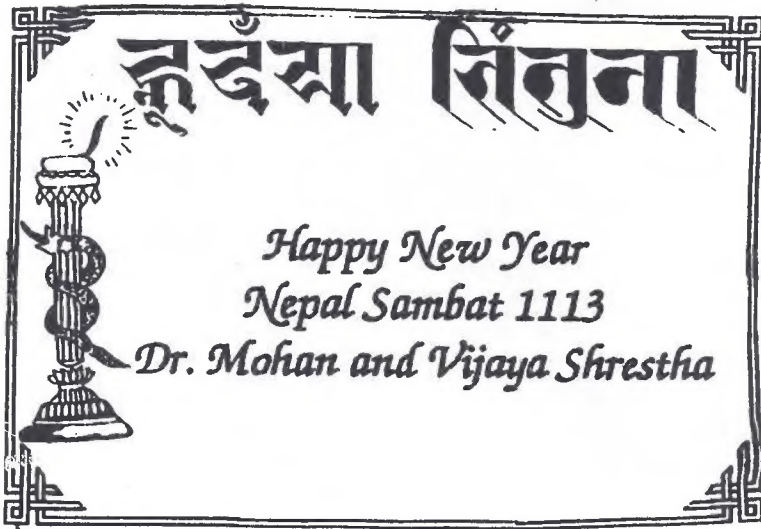 न्हूदँया भिंतुना
Happy New Year
Nepal Sambat 1113
Dr. Mohan and Vijaya Shrestha